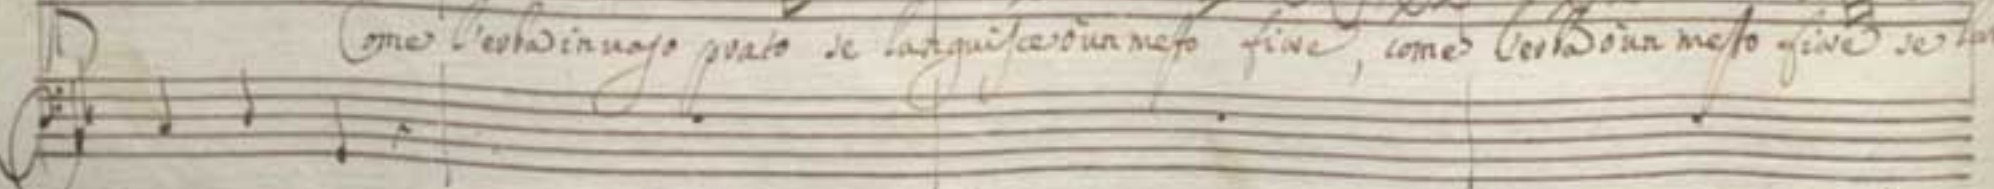 Come l'erba in vago prato se languisce ò un mesto fiore, come l'erba ò un mesto fiore se lan